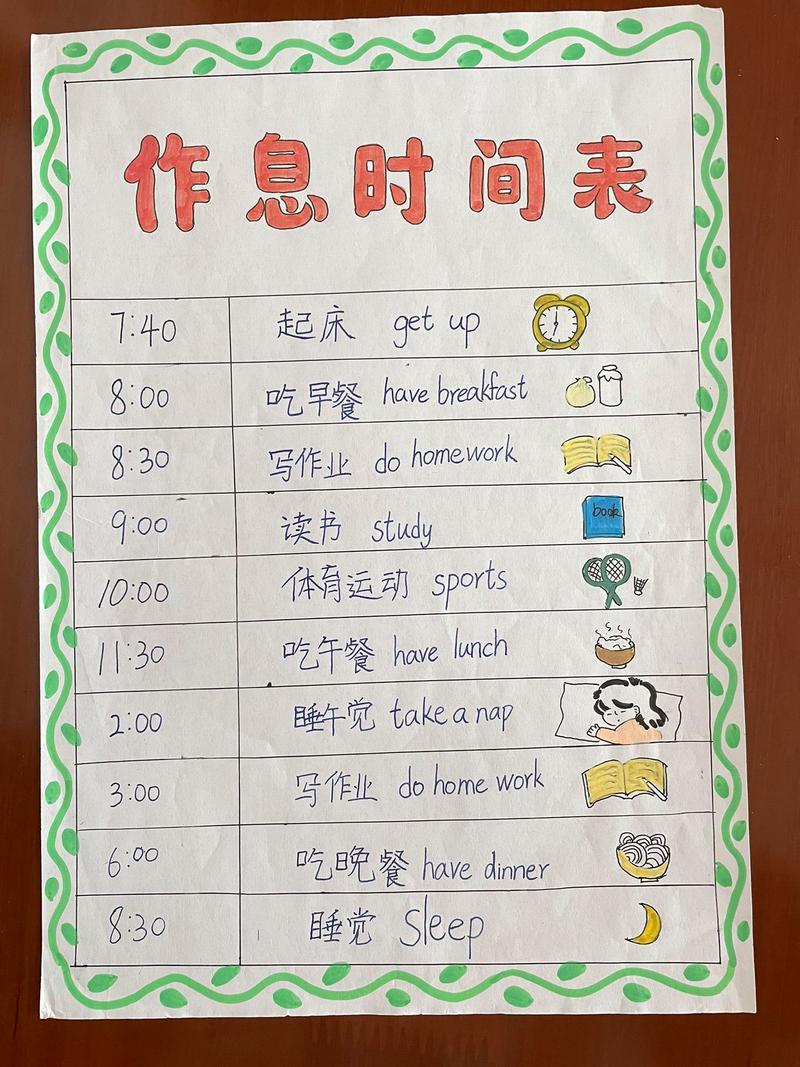 作息时间表
7:40 起床 get up
8:00 吃早餐 have breakfast
8:30 写作业 do homework
book
9:00 读书 study
10:00 体育运动 sports
11:30 吃午餐 have lunch
2:00 睡午觉 take a nap
3:00 写作业 do home work
6:00 吃晚餐 have dinner
8:30 睡觉 Sleep